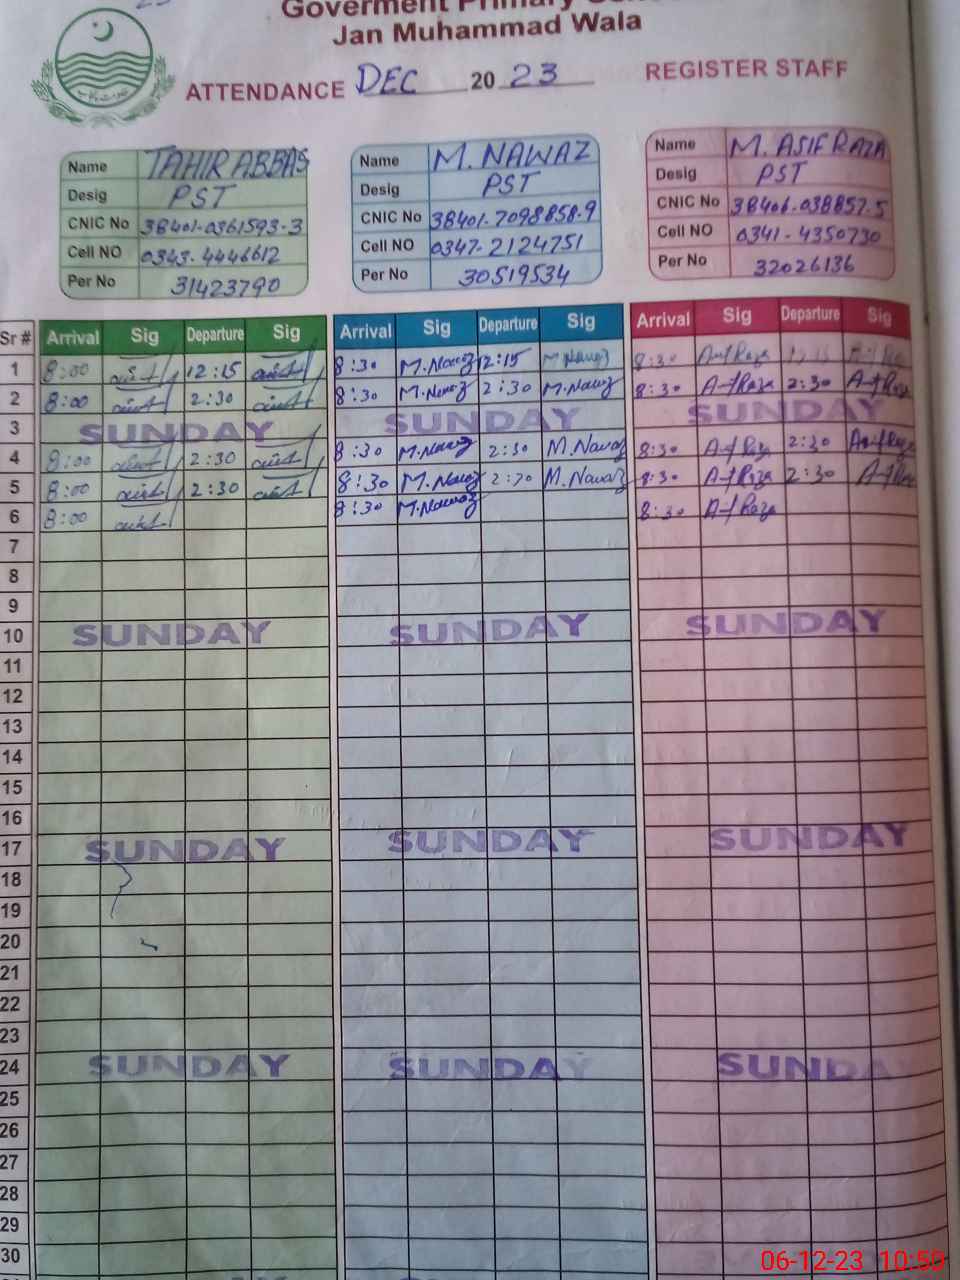 Goverment Primary
Jan Muhammad Wala
ATTENDANCE DEC 2023 REGISTER STAFF
Name TAHIR ABBAS
Desig PST
CNIC No 38401-0361593-3
Cell NO 0343-4446612
Per No 31423790
Name M. NAWAZ
Desig PST
CNIC No 38401-7098858-9
Cell NO 0347-2124751
Per No 30519534
Name M. ASIF RAZA
Desig PST
CNIC No 38406-038857-5
Cell NO 0341-4350730
Per No 32026136
Sr # Arrival Sig Departure Sig Arrival Sig Departure Sig Arrival Sig Departure Sig
1 8:00 12:15 8:30 M.Nawaz 12:15 M.Nawaz 8:30 Asif Raza
2 8:00 2:30 8:30 M.Nawaz 2:30 M.Nawaz 8:30 Asif Raza 2:30 Asif Raza
3 SUNDAY SUNDAY SUNDAY
4 8:00 2:30 8:30 M.Nawaz 2:30 M.Nawaz 8:30 Asif Raza 2:30 Asif Raza
5 8:00 2:30 8:30 M.Nawaz 2:30 M.Nawaz 8:30 Asif Raza 2:30 Asif Raza
6 8:00 8:30 M.Nawaz 8:30 Asif Raza
7
8
9
10 SUNDAY SUNDAY SUNDAY
11
12
13
14
15
16
17 SUNDAY SUNDAY SUNDAY
18
19
20
21
22
23
24 SUNDAY SUNDAY SUNDAY
25
26
27
28
29
30
06-12-23 10:59